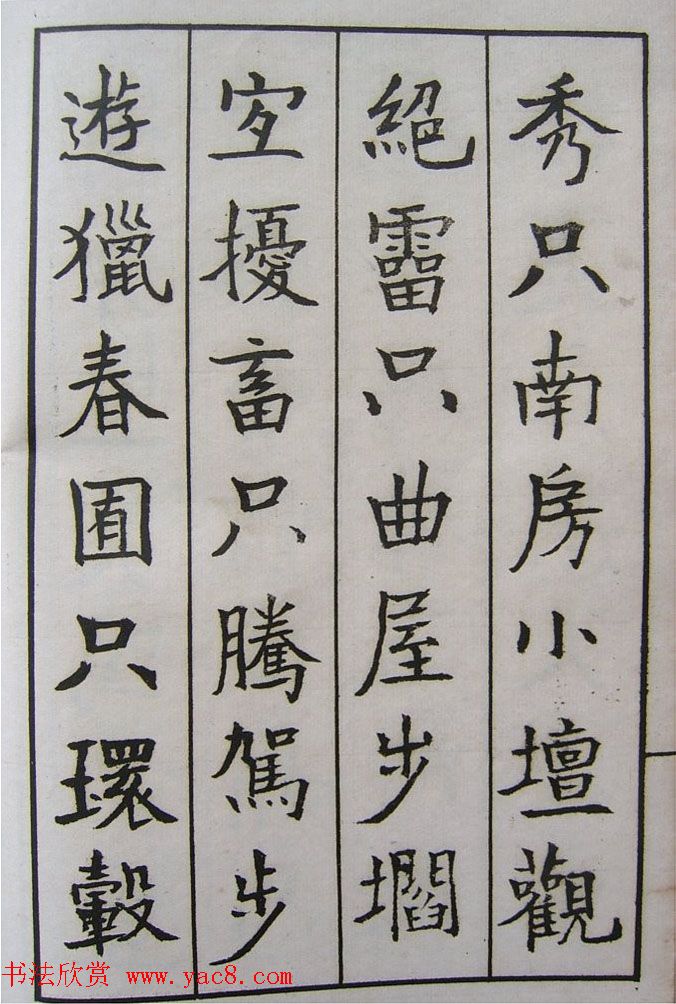 秀只南房小壇觀
絕霤只曲屋步壛
宐擾畜只騰駕步
遊獵春囿只環轂
书法欣赏 www.yac8.com